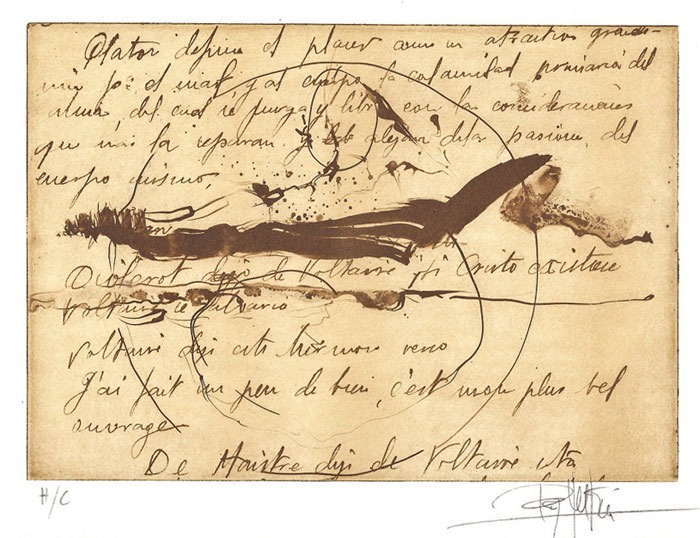 Platon define el placer como un atractivo grandi-
el mal y al cuerpo la calamidad primaria del
alma, del cual se purga y libra con las consideraciones
que más la separan y alejan de las pasiones del
cuerpo mismo,
Diderot dijo de Voltaire Si Cristo existiese
Voltaire
Voltaire dijo este hermoso verso
J'ai fait un peu de bien, c'est mon plus bel
ouvrage
De Maistre dijo de Voltaire esta
H/C